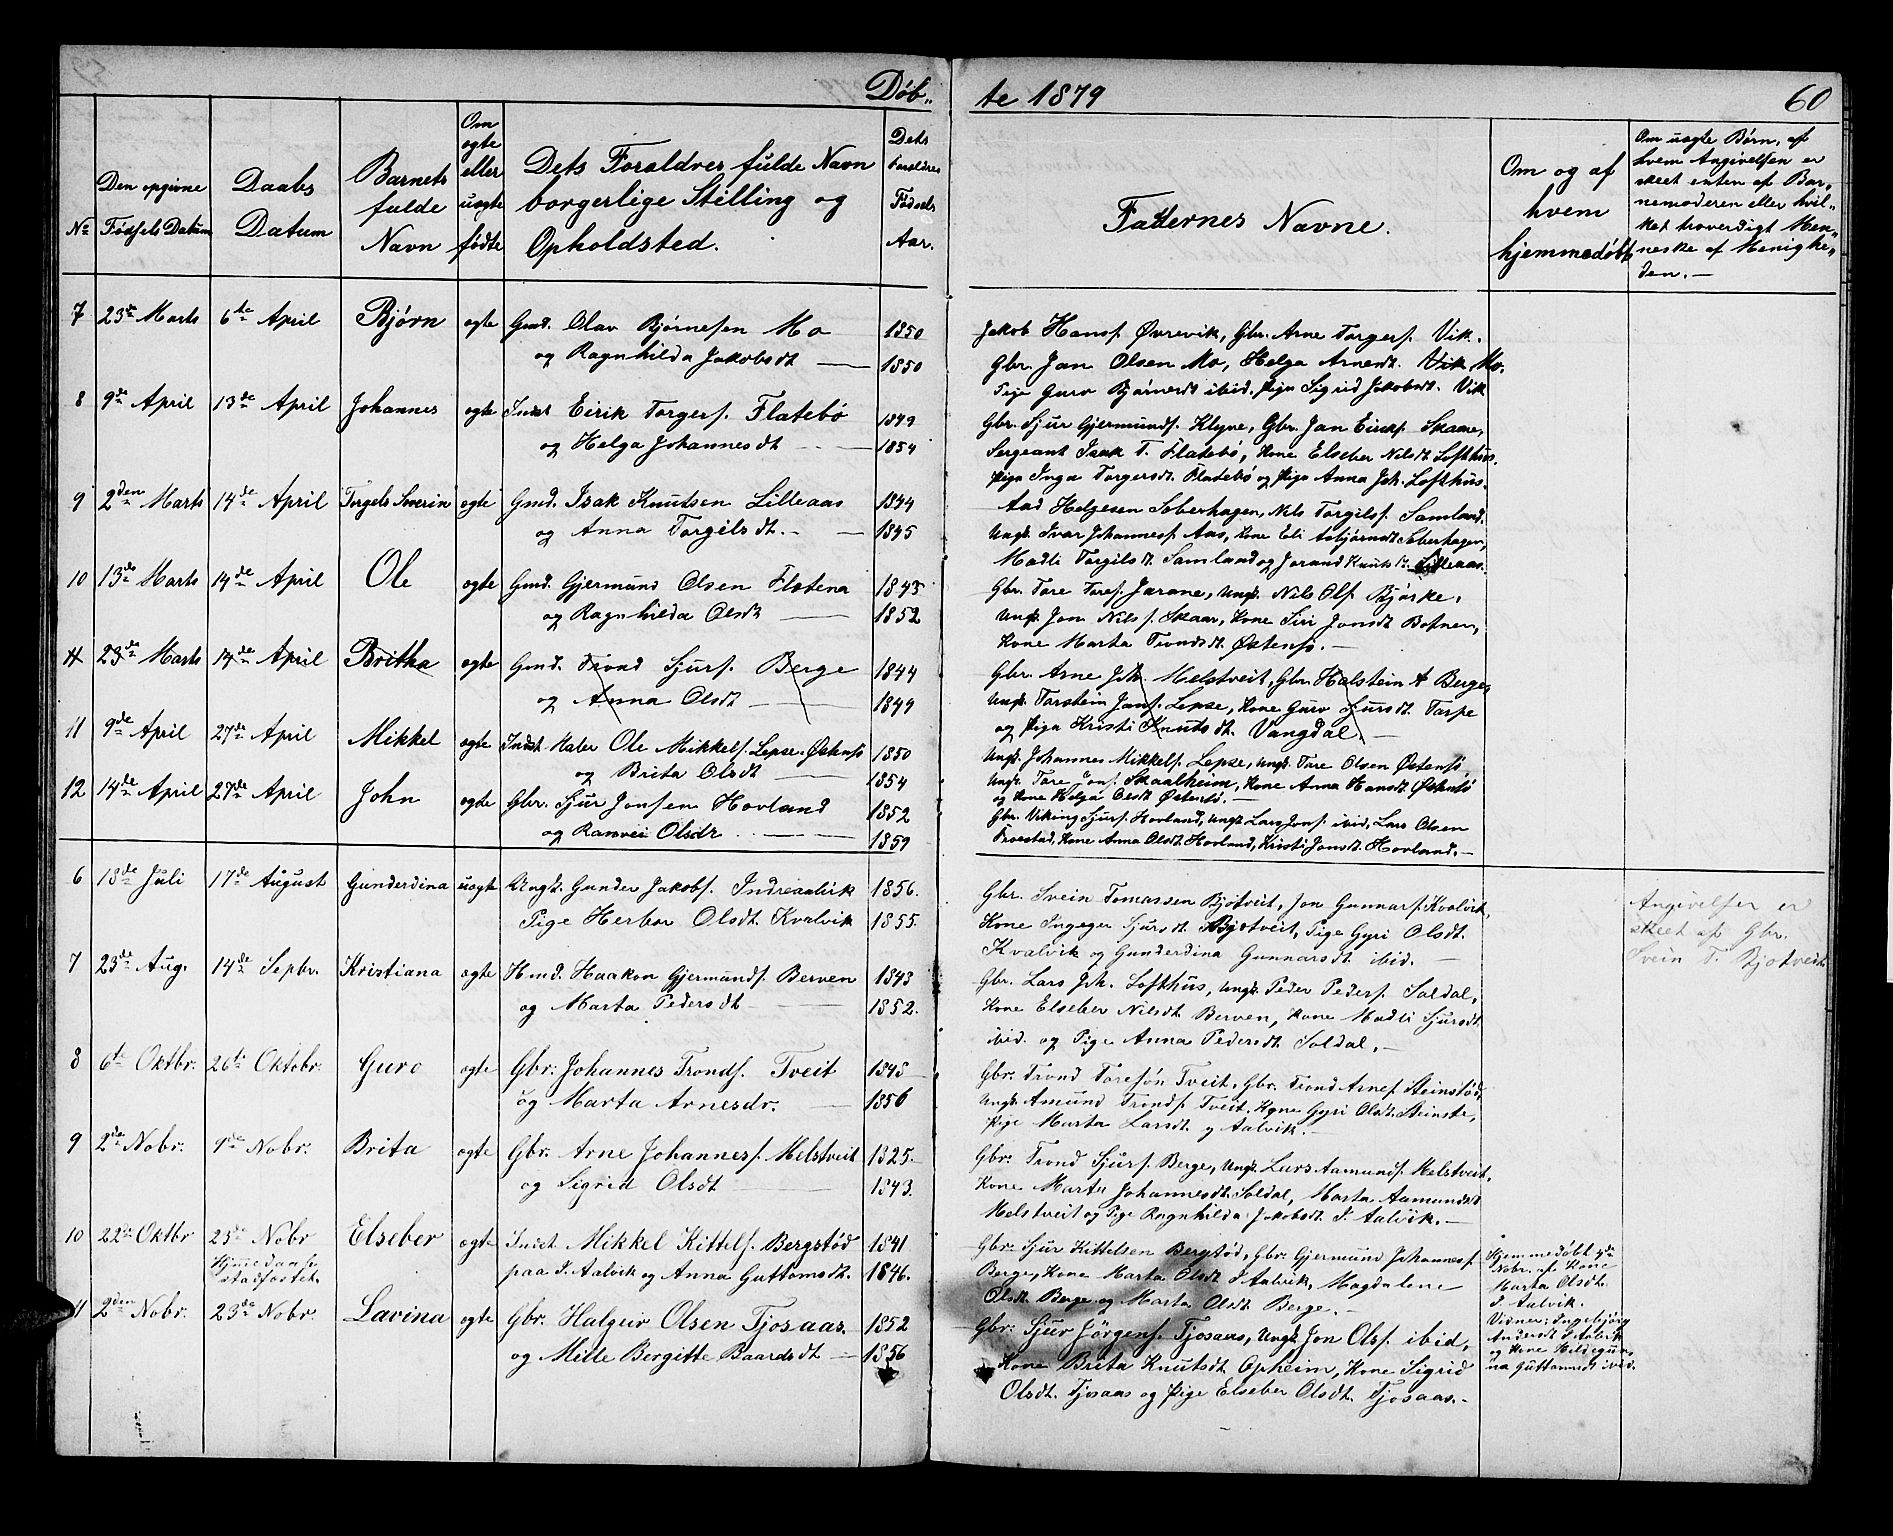 Døb„
te 1879
60
No
Den opgivne
Fødsels Datum
Daabs
Datum
Barnets
fulde
Navn
Om
ægte
eller
uægte
fødte
Dets Forældres fulde Navn
borgerlige Stilling og
Opholdsted.
Dets
Forældres
Fødsels
Aar.
Faddernes Navne.
Om og af
hvem
hjemmedøbt
Om uægte Børn, af
hvem Angivelsen er
skeet enten af Bar„
nemoderen eller hvil„
ket troverdigt Men„
neske af Menighe„
den.—
7 23de Marts 6te April Bjørn ægte Gmd. Olav Bjørnesen Mo 1850
og Ragnhilda Jakobsdt — 1850
Jakob Hansf. Øvrevik, Gbr. Arne Torgersf. Vik.
Gbr. Jan Olsen Mo, Helga Arnedt. Vik Mo.
Pige Guro Bjørnedt ibid. Pige Sigrid Jakobsdt. Vik
8 9de April 13de April Johannes ægte Indst Eirik Torgersf. Flatebø 1849
og Helga Johannesdt — 1854
Gbr. Sjur Gjermundsf. Klyve, Gbr. Jan Eirikf. Skaare,
Sergeant Isak T. Flatebø, Kone Elseber Nilsdt Lofthus.
Pige Inga Torgersdt. Flatebø og Pige Anna Joh. Lofthus.
9 2den Marts 14de April Torgels Severin ægte Gmd. Isak Knutsen Lilleaas 1844
og Anna Torgilsdt. — 1845
Aad Helgesen Soberhagen, Nils Torgilsf. Samland.
Ungk. Ivar Johannesf. Aas, Kone Eli Asbjørnsdt Soberhagen,
Madli Torgilsdt. Samland og Jorand Knutsdt. Lilleaas.
10 13de Marts 14de April Ole ægte Gmd. Gjermund Olsen Flotena 1843
og Ragnhilda Olsdt — 1852
Gbr. Tore Toresf. Jarane, Ungk. Nils Olsf. Bjørke,
Ungk. Jon Nilsf. Skaar, Kone Siri Jonsdt Botnen,
Kone Marta Trondsdt. Østensø.—
11 23de Marts 14de April Britha ægte Gmd. Trond Sjursf. Berge 1844
og Anna Olsdt — 1849
Gbr. Arne Joh. Melstveit, Gbr. Halstein A Berge,
Ungk. Torstein Jonsf. Lepse, Kone Guro Sjursdt. Torpe
og Pige Kristi Knutsdt. Vangdal.—
11 9de April 27de April Mikkel ægte Indst Maler Ole Mikkelsf. Lepse. Østensø 1850
og Brita Olsdt — 1854
Ungk. Johannes Mikkelsf. Lepse, Ungk. Tore Olsen Østensø,
Ungk. Tore Jonsf. Skaalheim, Kone Anna Hansdt Østensø
og Kone Helga Olsdt Østensø.—
12 14de April 27de April John ægte Gbr. Sjur Jonsen Hovland 1852
og Ranvei Olsdt. — 1859
Gbr. Viking Sjursf. Hovland, Ungk. Lars Jonsf. ibid, Lars Olsen
Kone Anna Olsdt. Hovland, Kristi Jonsdt. Hovland.—
6 18de Juli 17de August Gunderdina uægte Ungk. Gunder Jakobsf. Indreaalvik 1856.
Pige Herbor Olsdt. Kvalvik 1855.
Gbr. Svein Tomassen Bjotveit, Jon Gunnarsf. Kvalvik,
Kone Ingeger Sjursdt. Bjotveit, Pige Gyri Olsdt.
Kvalvik og Gunderdina Gunnarsdt ibid.—
Angivelsen er
skeet af Gbr.
Svein T. Bjotveit
7 23de Aug. 14de Sepbr. Kristiana ægte Hmd. Haakon Gjermundsf. Berven 1843
og Marta Pedersdt — 1852.
Gbr. Lars Joh. Lofthus, Ungk. Peder Pedersf. Soldal,
Kone Elseber Nilsdt Berven, Kone Madli Sjursdt
ibid. og Pige Anna Pedersdt Soldal.—
8 6te Oktbr. 26de Oktobr. Guro ægte Gbr: Johannes Trondsf. Tveit 1845
og Marta Arnesdr. — 1856
Gbr: Trond Toresøn Tveit, Gbr. Trond Arnesf Steinstød,
Ungk. Amund Trondsf. Tveit. Kone Gyri Olsdt. Steinstø,
Pige Marta Larsdt. y Aalvik.—
9 2de Nobr. 9de Nobr. Brita ægte Gbr: Arne Johannesf. Melstveit 1825.
og Sigrid Olsdt — 1843.
Gbr: Trond Sjursf. Berge, Ungk. Lars Aamundsf. Melstveit,
Kone Marta Johannesdt Soldal, Marta Aamundsdt
Melstveit og Pige Ragnhilda Jakobsdt I. Aalvik.—
10 22de Oktbr 23de Nobr Elseber ægte Indst. Mikkel Kittelsf. Bergstød 1841
Hjmedaab
stadfæstet. paa I. Aalvik og Anna Guttomsdt. 1846.
Gbr: Sjur Kittelsen Bergstød, Gbr: Gjermund Johannesf
Berge, Kone Marta Olsdt I. Aalvik, Magdalene
Olsdt. Berge og Marta Olsdt Berge.—
Hjemmedøbt 4de
Nobr. af Kone
Marta Olsdt.
I. Aalvik.
Vidner: Ingebjørg
Andersdt I Aalvik
og Kone Hildegun„
na Guttomsdt ibid.
11 2den Nobr. 23de Nobr. Lavina ægte Gbr. Halgeir Olsen Tjosaas. 1852
og Mille Bergitte Baardsdt — 1856
Gbr: Sjur Jørgensf. Tjosaas, Ungk. Jon Olsf. ibid,
Kone Brita Knutsdt Opheim, Kone Sigrid
Olsdt. Tjosaas og Pige Elseber Olsdt. Tjosaas.—